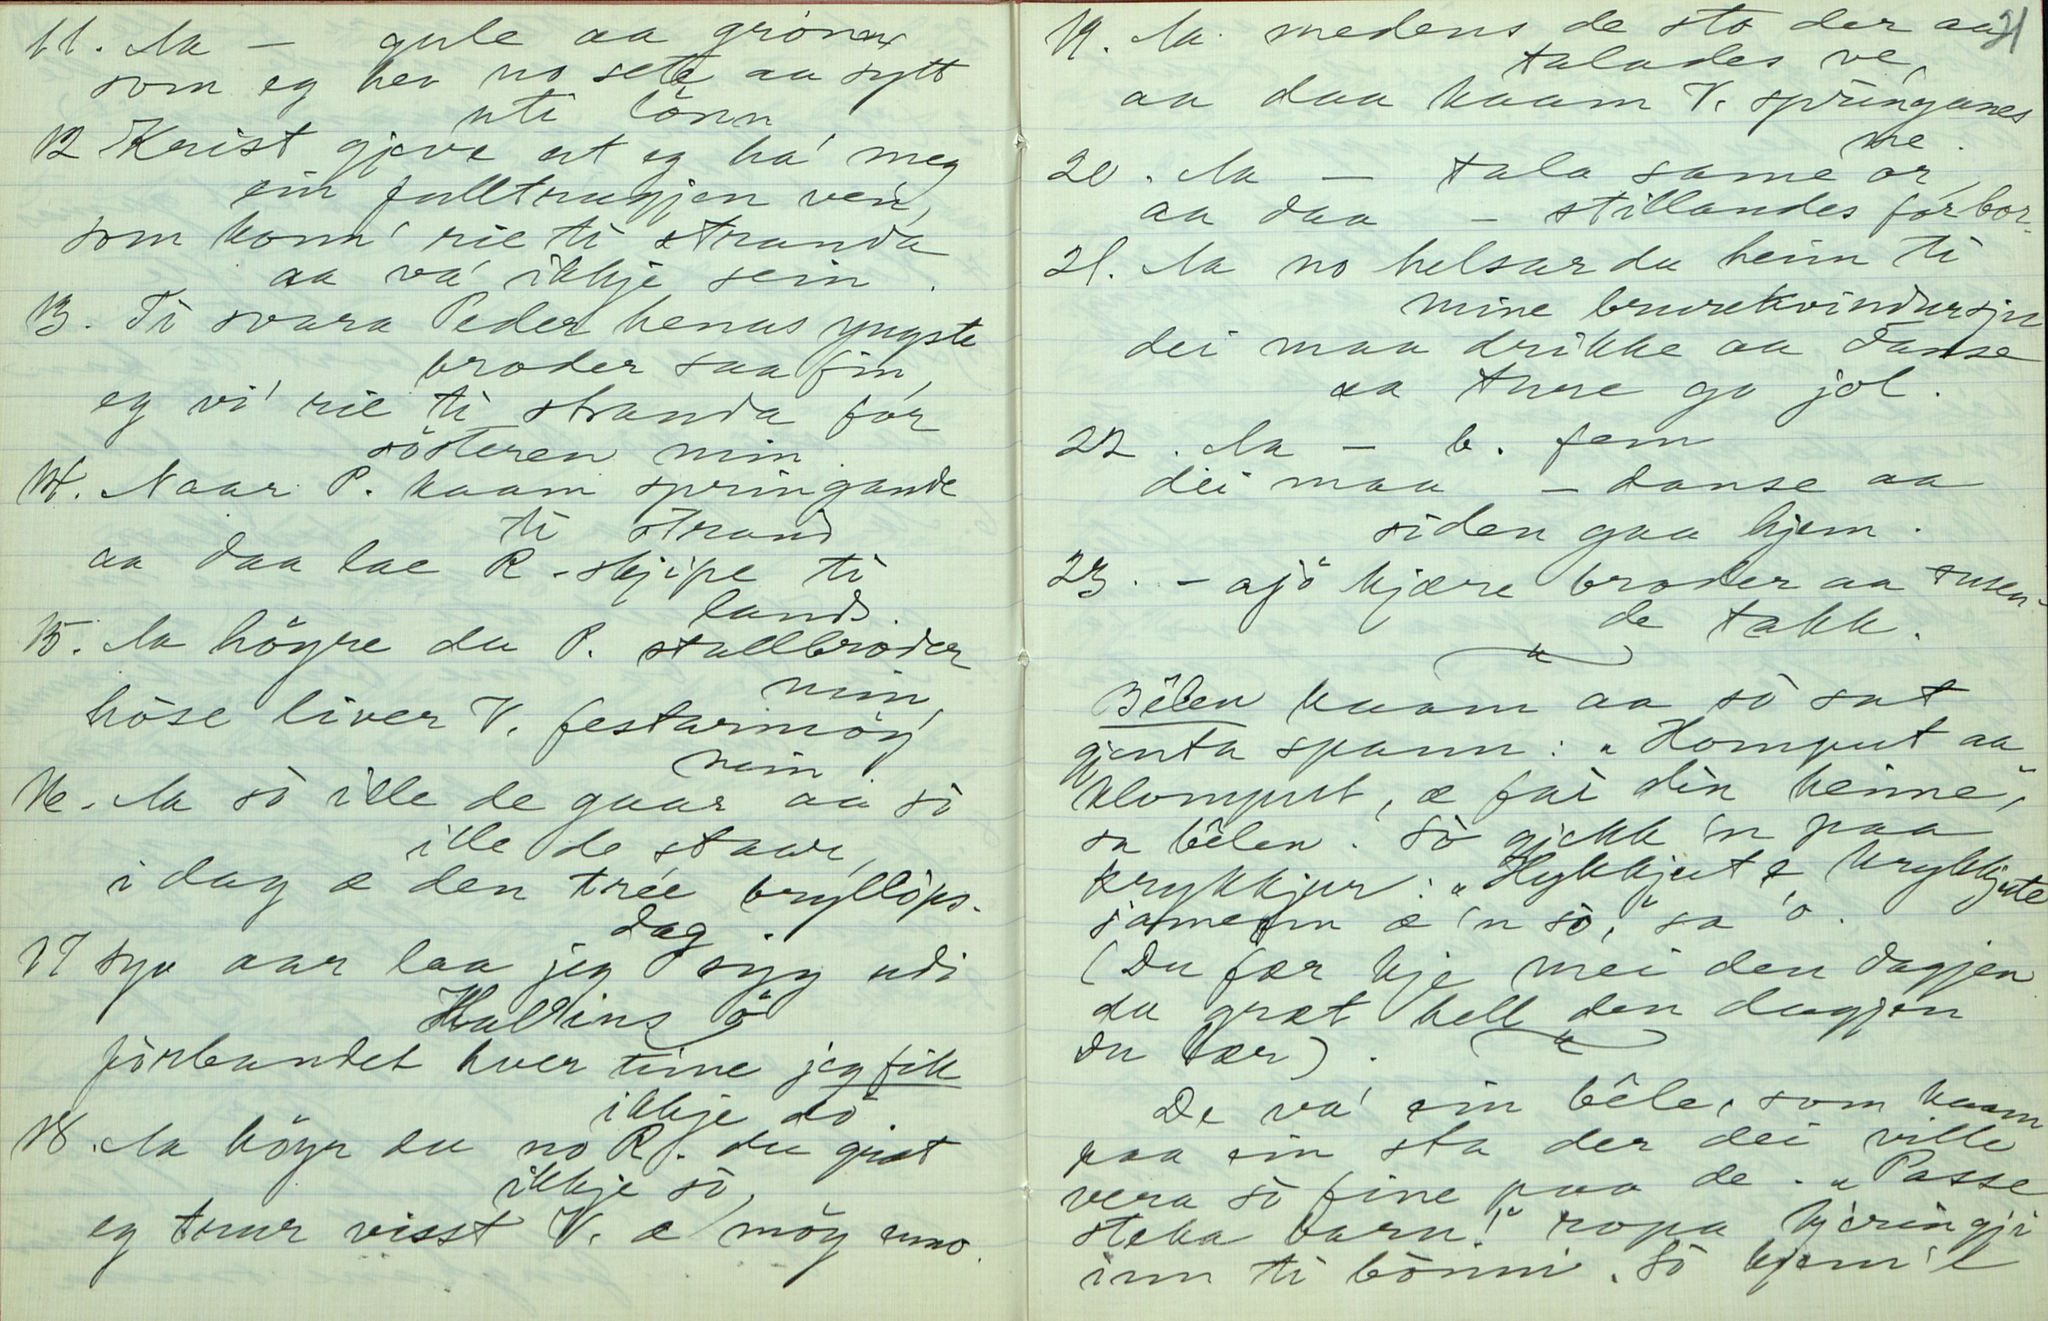 11. Aa – gule aa gröner
som eg hev no sete aa sytt
uti lönn
12 Krist gjeve at eg ha' meg
ein fulltrugjen ven,
som kom' rie ti stranda
aa va' ikkje sein.
13. Ti svara Peder henas yngste
broder saa fin,
eg vi' rie ti stranda för
sösteren min.
14. Naar P. kaam springande
ti strand
aa daa lae R. skjipe ti
land.
15. Aa höyre du P. stallbroder
min,
höse liver V. festarmöy
min.
16. Aa sò ille de gaar aa sò
ille de staar,
i dag æ den trée bryllöps-
dag.
17 syv aar laa jeg syg udi
Hallins ö
förbandet hver time jeg fik
ikkje dö
18. Aa höyr du no R. du græt
ikkje sò,
eg truer visst V. æ möy enno.
21
19. Aa medens de sto der aa
talades ve,
aa daa kaam V. springanes
ne.
20. Aa – tala same or,
aa daa – stillandes för bor.
21. Aa no helsar du heim ti
mine brurekvindur sju
dei maa drikke aa danse
aa ture go jol.
22. Aa – b. fem
dei maa – danse aa
siden gaa hjem.
23. – ajö kjære broder aa tusen-
de takk.
Bêlen kaam aa sò sat
gjenta spann: "Homput aa
klomput, æ fai din heime",
sa bêlen. Sò gjekk 'n paa
krykkjur: "Hykkjut æ krykkjute
samein æ 'n sò," sa 'o.
(Du fær kje mei den dagjen
du græt hell den dagjen
du lær).
De va' ein bêle, som kaam
paa ein sta der dei ville
vera sò fine paa de. "Passe
steka barn!" ropa kjæringji
inn ti bönni. Sò kjem 'e